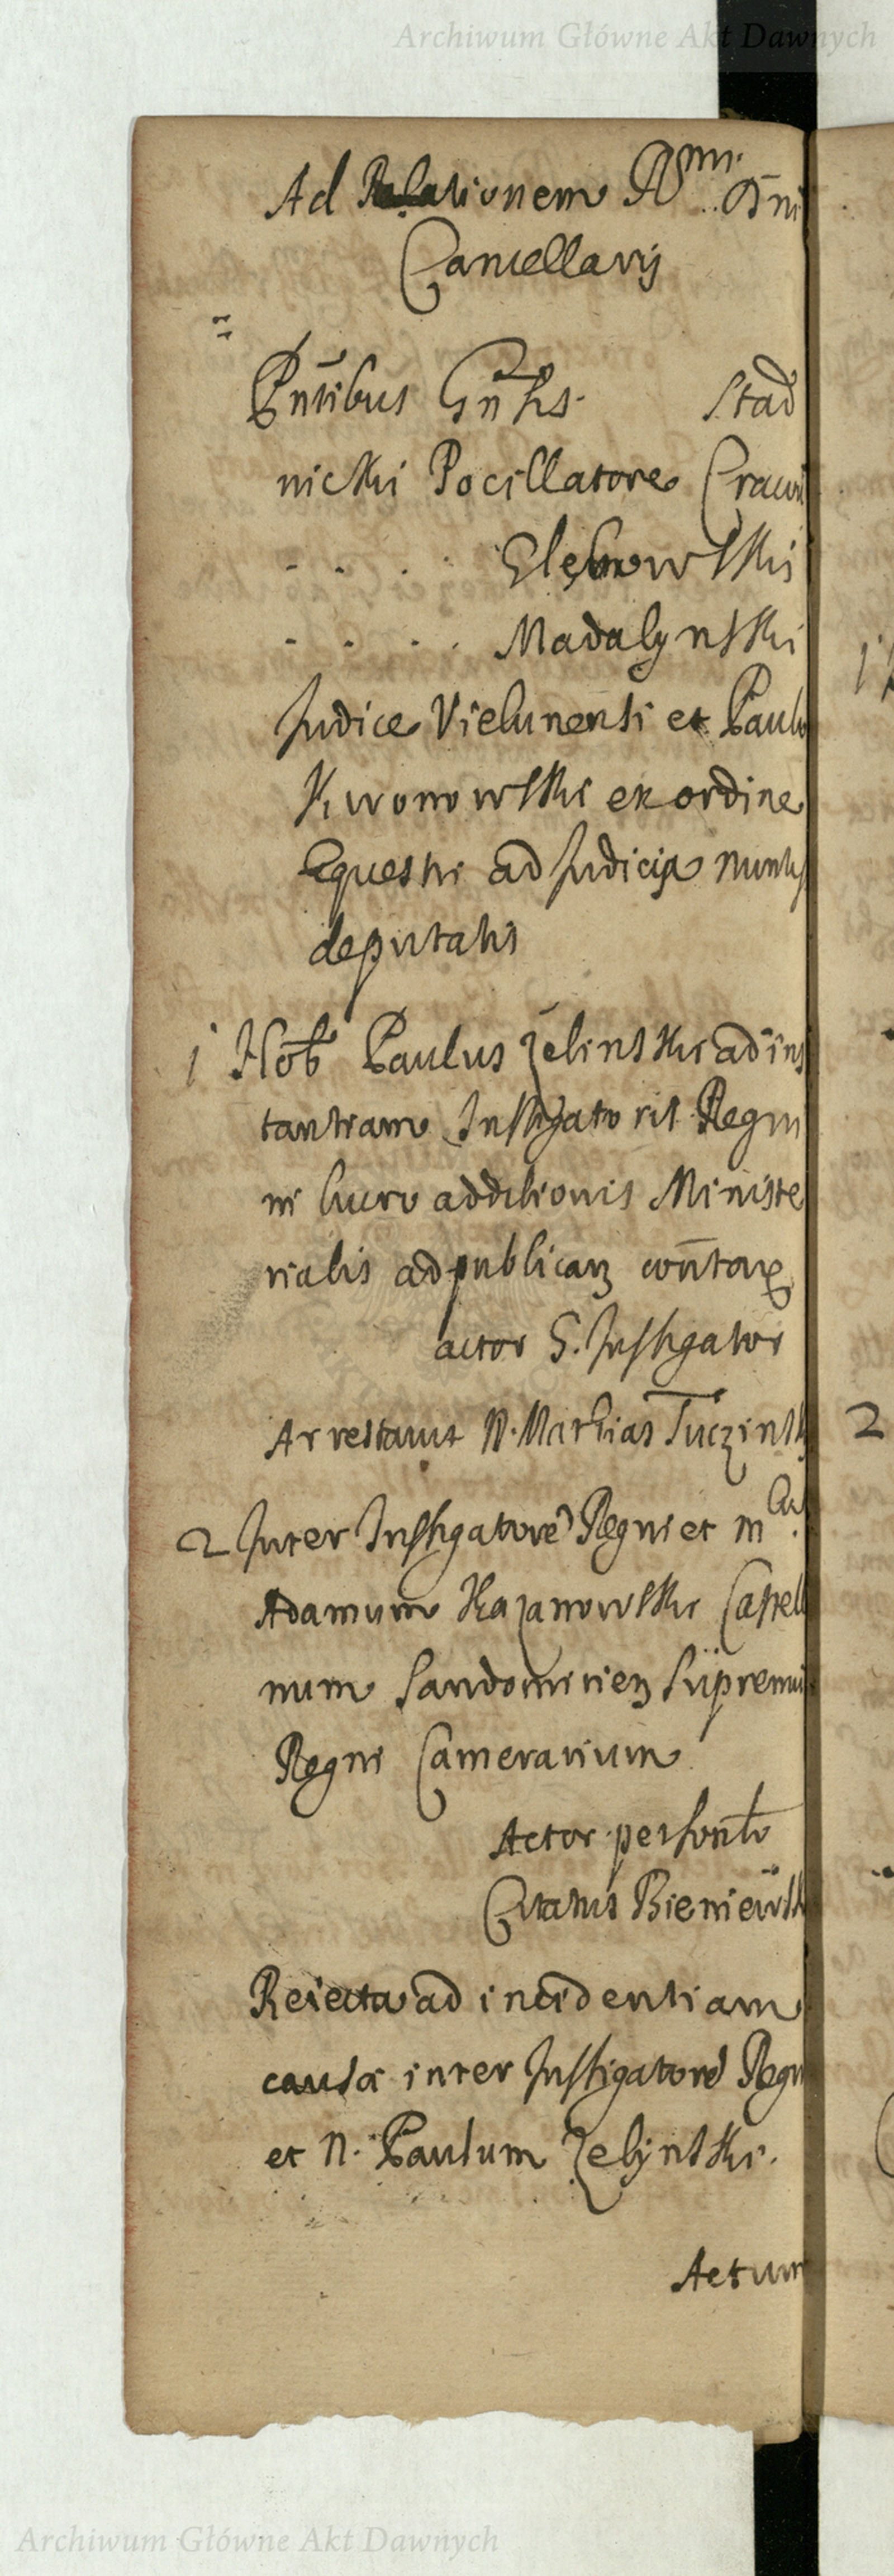 Archiwum Główne Akt Dawnych
Ad Relationem R^mi Dni
Cancellarij
Pntibus Gn̄lis Stad
nicki Pocillatore Cracovi
Glębowski
Madalynski
Judice Vielunensi et Paulo
ex ordine
Equestri ad Judicia nuntijs
deputatis
1 Nob̄ Paulus Zelinski ad ins
tantiam Instigatoris Regni
in lucro additionis Ministe
rialis ad publicam
actor G. Instigator
Arrestavit N. Mathias Tuczinski
2 Inter Instigatorē Regni et M
Adamum Kazanowski Castell
num Sandomirien Supremu
Regni Camerarium
Actor personlr
Citatus Bieniewsk
Reiecta ad incidentiam
causæ inter Instigatorē Regni
et N. Paulum Zelynski.
Actum
2
Archiwum Główne Akt Dawnych